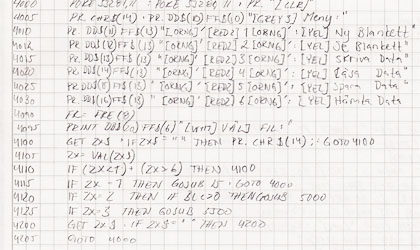 4000 POKE 53280,11 : POKE 53281,11 : PR. "[CLR]
4005 PR. CHR$(14) : PR. DD$(10) FF$(10) "[GREY3] Meny:"
4010 PR. DD$(8) FF$(13) "[ORNG]" [RED2] 1 [ORNG] : [YEL] Ny Blankett"
4012 PR. DD$(8) FF$(13) "[ORNG]' [RED2] 2 [ORNG] : [YEL] Se Blankett"
4015 PR. DD$(13) "[ORNG]' [RED2] 3 [ORNG] : [YEL] Skriva Data"
4020 PR. DD$(14) FF$(13) "[ORNG]' [RED2] 4 [ORNG] : [YEL] Läsa Data"
4025 PR. DD$(15) FF$(13) " [ORNG]' [RED2] 5 [ORNG] : [YEL] Spara Data"
4030 PR. DD$(16) FF$(13) " [ORNG]' [RED2] 6 [ORNG] : [YEL] Hämta Data
4090 FR= FRE(0)
4095 PRINT DD$(20) FF$(6) "[WHT] VÄLJ FIL!"
4100 GET 2X$ : IF 2X$ = "" THEN PR. CHR$(14); : GOTO 4100
4105 2X= VAL(2X$)
4110 IF (2X<1) + (2X>6) THEN 4100
4115 IF 2X = 1 THEN GOSUB 15 : GOTO 4000
4120 IF 2X= 2 THEN IF BL<>0 THEN GOSUB 5000
4125 IF 2X=3 THEN GOSUB 5500
4200 GET 2X$ : IF 2X$ = "" THEN 4200
4205 GOTO 4000